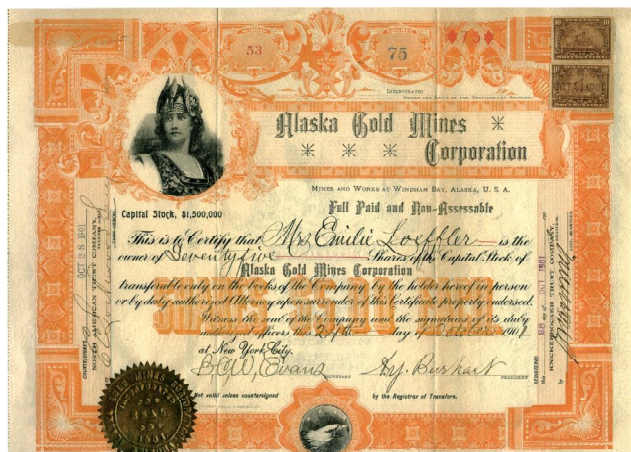 53
75
*75*
INCORPORATED
Alaska Gold Mines *
* * * Corporation
MINES AND WORKS AT WINDHAM BAY, ALASKA, U. S. A.
Capital Stock, $1,500,000
Full Paid and Non-Assessable
This is to Certify that Mrs Emilie Loeffler is the
owner of Seventy five Shares of the Capital Stock of
Alaska Gold Mines Corporation
transferable only on the books of the Company by the holder hereof in person
or by duly authorized Attorney upon surrender of this Certificate properly endorsed.
Witness the seal of the Company and the signatures of its duly
authorized officers this 24th day of October 1901
at New York City.
B.W. Evans
Burkart
PRESIDENT
Not valid unless countersigned by the Registrar of Transfers.
COUNTERSIGNED
OCT 28 1901
NORTH AMERICAN TRUST COMPANY,
REGISTERED
28 OCT 1901
KNICKERBOCKER TRUST COMPANY
1901